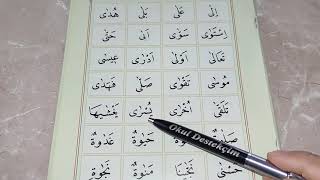 اِلٰى عَلٰى بَلٰى هُدٰى
اِسْتَوٰى سَوّٰى اَنّٰى حَتّٰى
تَعَالٰى اَوْلٰى اَدْرٰى عٖيسٰى
مُوسٰى تَقْوٰى صَلّٰى فَهَدٰى
تَلَقّٰى اُخْرٰى يُسْرٰى يَغْشٰيهَا
حَيٰوةٌ غَدٰوةٌ
مَنٰوةَ نَجٰوةٌ
Okul Destekçim